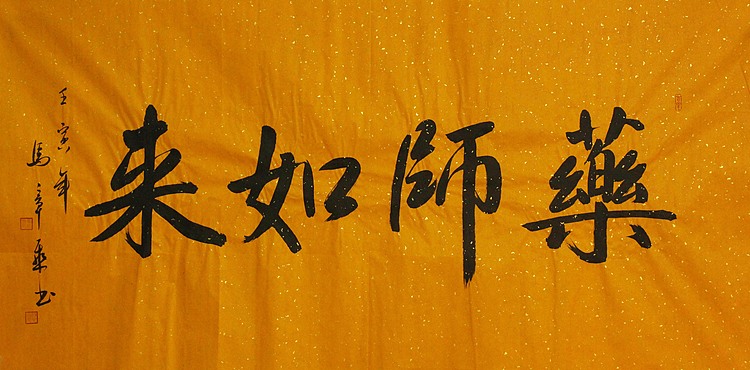 藥師如来
壬寅年
馬章乘书